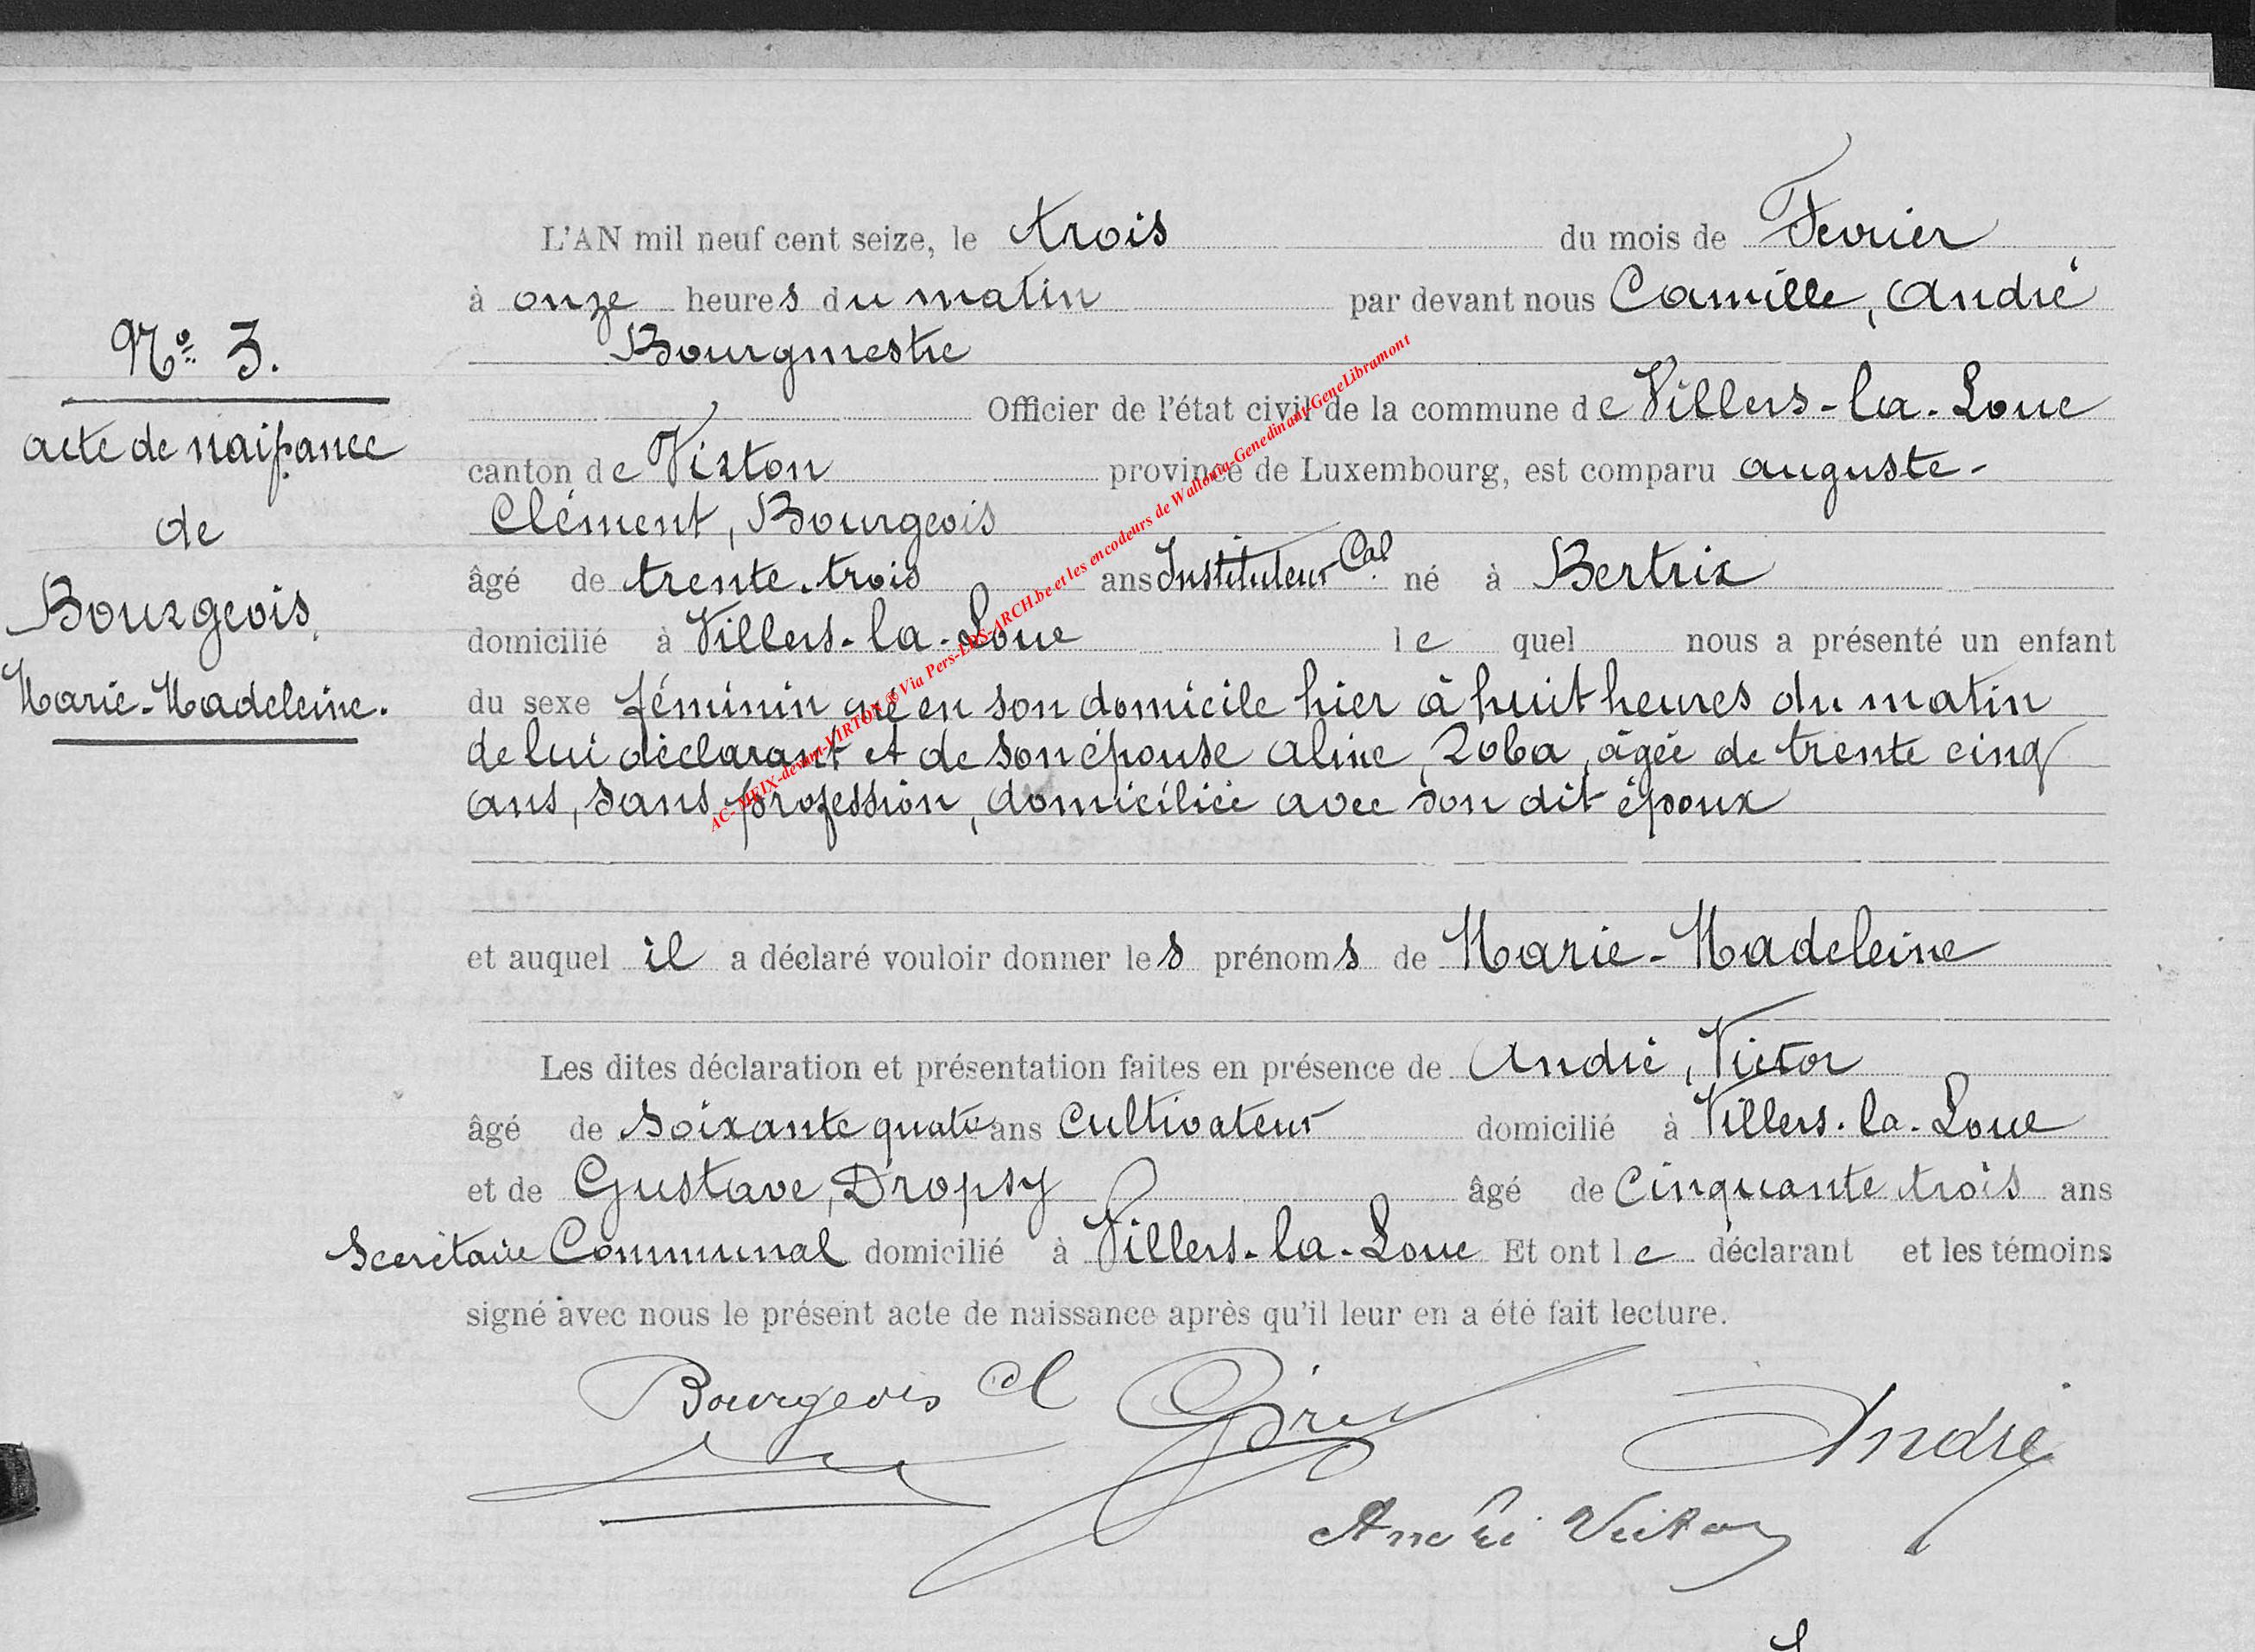 L'AN mil neuf cent seize, le trois du mois de Fevrier
à onze heures du matin par devant nous Camille, André
Bourgmestre
Officier de l'état civil de la commune de Villers-la-Loue
canton de Virton province de Luxembourg, est comparu auguste-
Clément, Bourgeois
âgé de trente-trois ans Instituteur Cal né à Bertrix
domicilié à Villers-la-Loue le quel nous a présenté un enfant
du sexe féminin né en son domicile hier à huit heures du matin
de lui déclarant et de son épouse aline, Roba, âgée de trente cinq
ans, sans profession, domiciliée avec son dit époux
et auquel il a déclaré vouloir donner les prénoms de Marie-Madeleine
Les dites déclaration et présentation faites en présence de André, Victor
âgé de soixante quatre ans cultivateur domicilié à Villers-la-Loue
et de Gustave, Dropsy âgé de Cinquante trois ans
Secrétaire Communal domicilié à Villers-la-Loue Et ont le déclarant et les témoins
signé avec nous le présent acte de naissance après qu'il leur en a été fait lecture.
Bourgeois Cl
André
André Victor
No. 3.
acte de naissance
de
Bourgeois,
Marie-Madeleine.
AC-MEIX-devant-VIRTON ® Via Pers-LDS-ARCH.be et les encodeurs de Wallonia-Genedinant-GeneLibramont